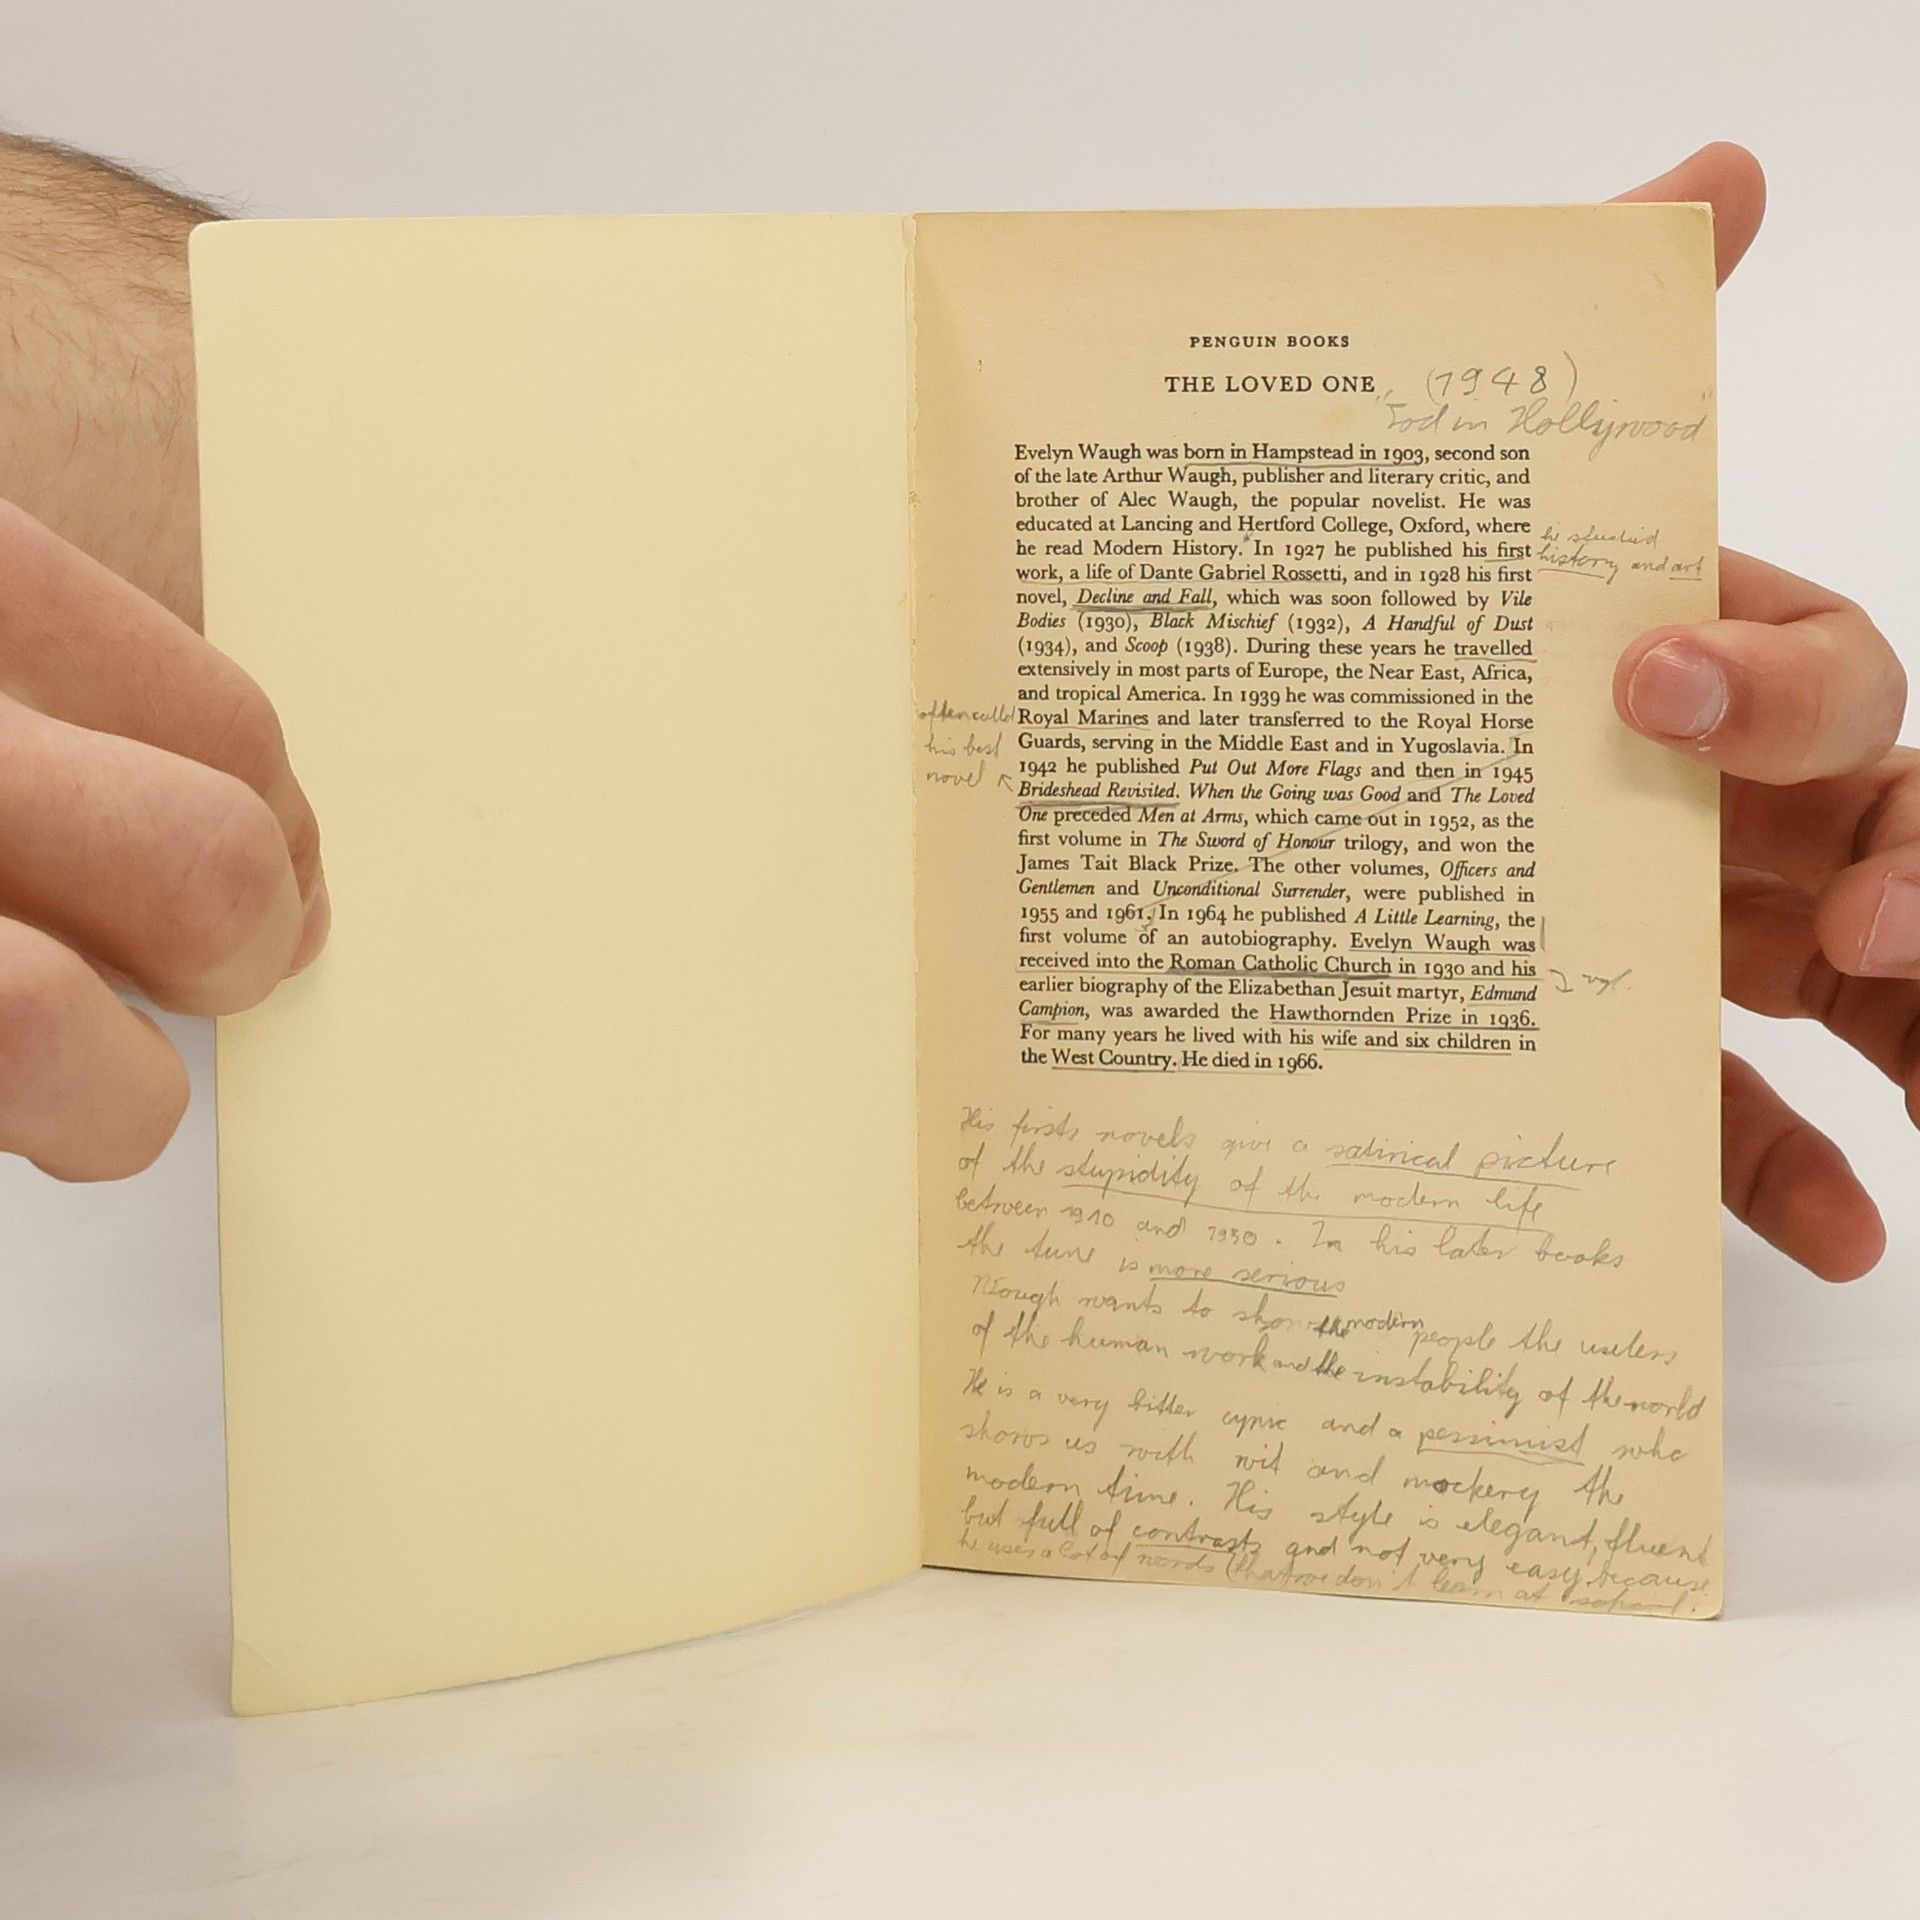 PENGUIN BOOKS
THE LOVED ONE (1948)
"Tod in Hollywood"
Evelyn Waugh was born in Hampstead in 1903, second son
of the late Arthur Waugh, publisher and literary critic, and
brother of Alec Waugh, the popular novelist. He was
educated at Lancing and Hertford College, Oxford, where
he read Modern History. In 1927 he published his first
he studied
history and art
work, a life of Dante Gabriel Rossetti, and in 1928 his first
novel, Decline and Fall, which was soon followed by Vile
Bodies (1930), Black Mischief (1932), A Handful of Dust
(1934), and Scoop (1938). During these years he travelled
extensively in most parts of Europe, the Near East, Africa,
and tropical America. In 1939 he was commissioned in the
Royal Marines and later transferred to the Royal Horse
Guards, serving in the Middle East and in Yugoslavia. In
1942 he published Put Out More Flags and then in 1945
often called
his best
novel
Brideshead Revisited. When the Going was Good and The Loved
One preceded Men at Arms, which came out in 1952, as the
first volume in The Sword of Honour trilogy, and won the
James Tait Black Prize. The other volumes, Officers and
Gentlemen and Unconditional Surrender, were published in
1955 and 1961. In 1964 he published A Little Learning, the
first volume of an autobiography. Evelyn Waugh was
received into the Roman Catholic Church in 1930 and his
vgl.
earlier biography of the Elizabethan Jesuit martyr, Edmund
Campion, was awarded the Hawthornden Prize in 1936.
For many years he lived with his wife and six children in
the West Country. He died in 1966.
His firsts novels give a satirical picture
of the stupidity of the modern life
between 1910 and 1930. In his later books
the tune is more serious
Waugh wants to show the modern people the useless
of the human work and the instability of the world
He is a very bitter cynic and a pessimist who
shows us with wit and mockery the
modern time. His style is elegant, fluent
but full of contrasts and not very easy because
he uses a lot of words (that we don't learn at school.